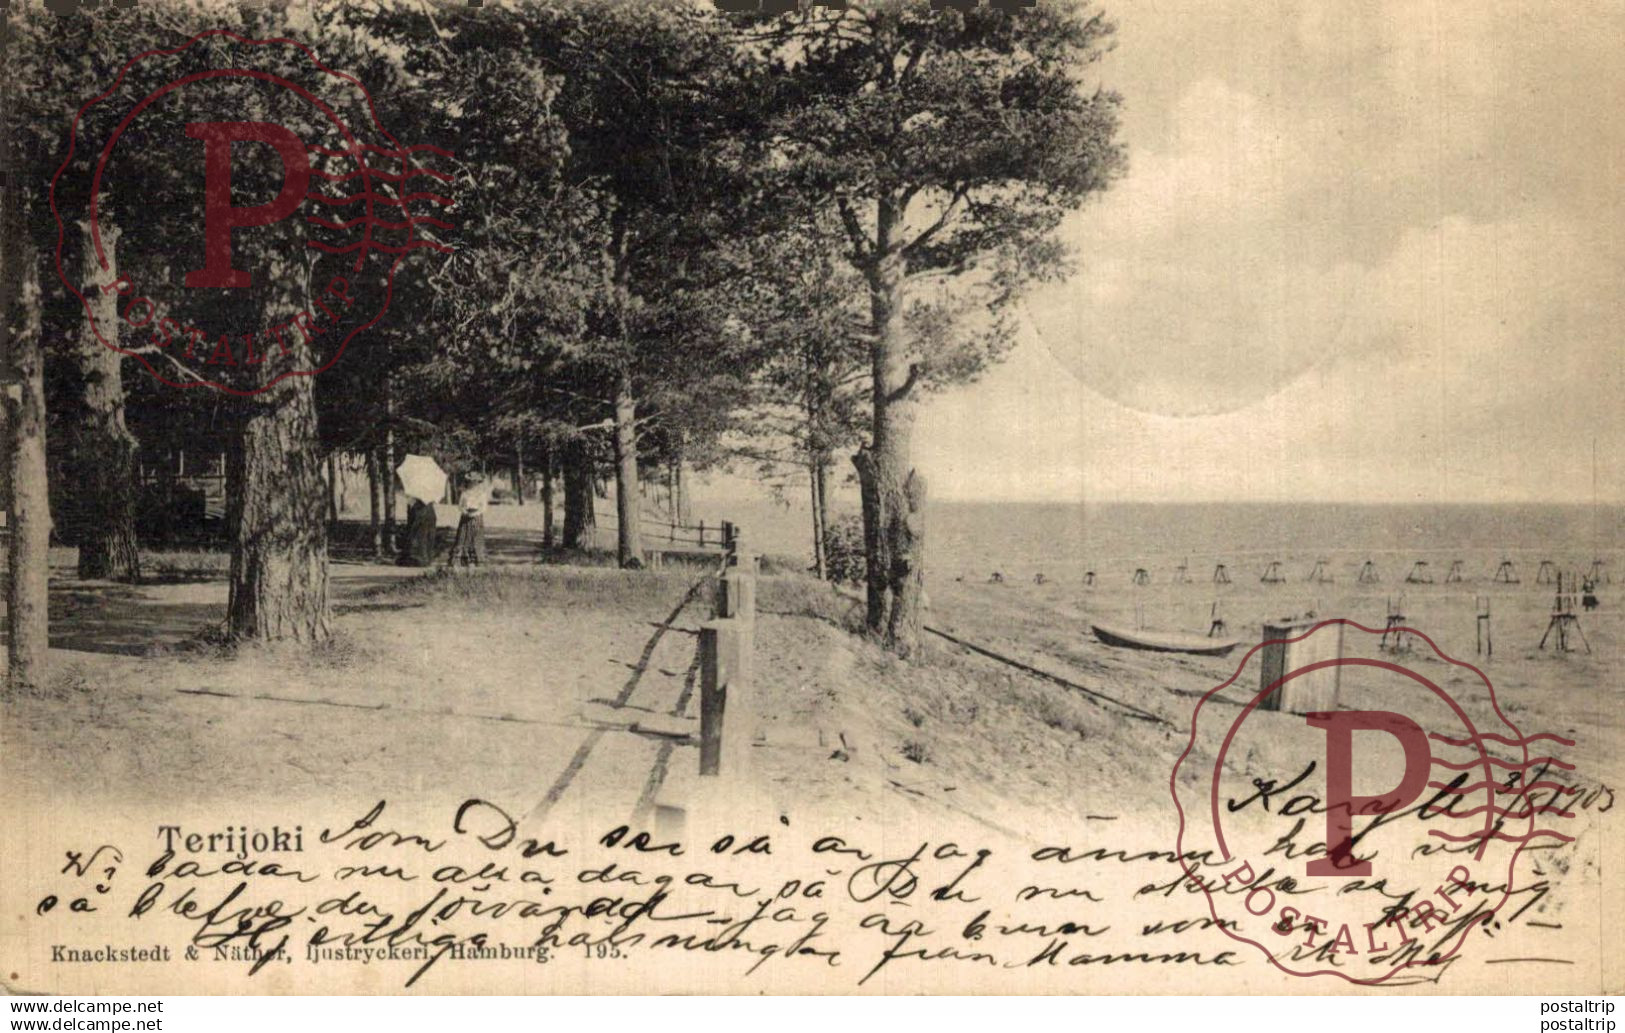 P
POSTALTRIP
Karyle 3/8 1903
Terijoki Som Du ser så är jag ännu här ut-
Vi badar nu alla dagar så Du nu skulle se mig
så blefve du förvånad – jag är brun som en
Hjertliga hälsningar från Mamma
Knackstedt & Näther, ljustryckeri, Hamburg. 195.
P
POSTALTRIP
www.delcampe.net
www.delcampe.net
postaltrip
postaltrip